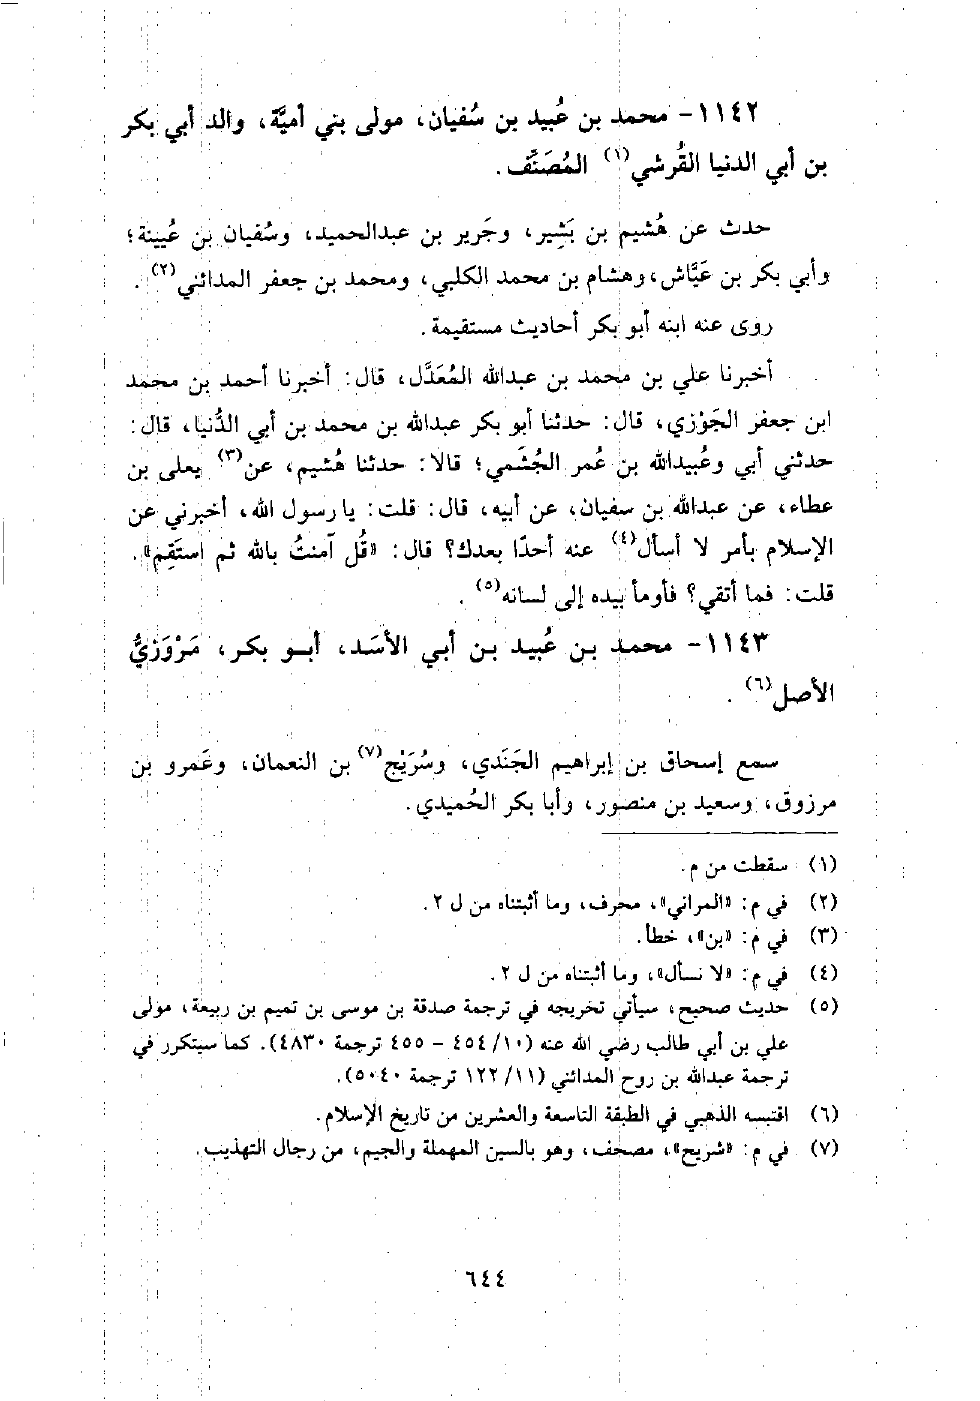 ١١٤٢- محمد بن عُبيد بن سُفيان، مولى بني أميَّة، والد أبي بكر
بن أبي الدنيا القُرشي(١) المُصَنِّف.
حدث عن هُشيم بن بَشِير، وجَرير بن عبدالحميد، وسُفيان بن عُيينة؛
وأبي بكر بن عَيَّاش، وهشام بن محمد الكلبي، ومحمد بن جعفر المدائني(٢).
روى عنه ابنه أبو بكر أحاديث مستقيمة.
أخبرنا علي بن محمد بن عبدالله المُعَدَّل، قال: أخبرنا أحمد بن محمد
ابن جعفر الجَوْزي، قال: حدثنا أبو بكر عبدالله بن محمد بن أبي الدُّنيا، قال:
حدثني أبي وعُبيدالله بن عُمر الجُشَمي؛ قالا: حدثنا هُشيم، عن(٣) يعلى بن
عطاء، عن عبدالله بن سفيان، عن أبيه، قال: قلت: يا رسول الله، أخبرني عن
الإسلام بأمر لا أسأل(٤) عنه أحدًا بعدك؟ قال: «قُل آمنتُ بالله ثم استَقِم».
قلت: فما أتقي؟ فأومأ بيده إلى لسانه(٥).
١١٤٣- محمد بن عُبيد بن أبي الأسَد، أبو بكر، مَرْوَزيُّ
الأصل(٦).
سمع إسحاق بن إبراهيم الجَنَدي، وسُرَيْج(٧) بن النعمان، وعَمرو بن
مرزوق، وسعيد بن منصور، وأبا بكر الحُميدي.
(١) سقطت من م.
(٢) في م: «المراني»، محرف، وما أثبتناه من ل ٢.
(٣) في م: «بن»، خطأ.
(٤) في م: «لا نسأل»، وما أثبتناه من ل ٢.
(٥) حديث صحيح، سيأتي تخريجه في ترجمة صدقة بن موسى بن تميم بن ربيعة، مولى
علي بن أبي طالب رضي الله عنه (١٠/ ٤٥٤ - ٤٥٥ ترجمة ٤٨٣٠). كما سيتكرر في
ترجمة عبدالله بن روح المدائني (١١/ ١٢٢ ترجمة ٥٠٤٠).
(٦) اقتبسه الذهبي في الطبقة التاسعة والعشرين من تاريخ الإسلام.
(٧) في م: «شريح»، مصحف، وهو بالسين المهملة والجيم، من رجال التهذيب.
٦٤٤